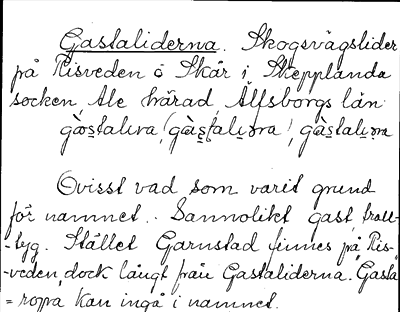 Gastaliderna. Skogsvägslider
på Risveden ö Skår i Skepplanda
socken, Ale härad, Älfsborgs län
gàstalıva (gàs̱talı̱ɔra), gàs̱talı̱ɔra
Ovisst vad som varit grund
för namnet. Sannolikt gast troll-
-tyg. Stället Garnstad finnes på Ris-
-veden, dock långt från Gastaliderna. "Gasta"
= ropa kan ingå i namnet.